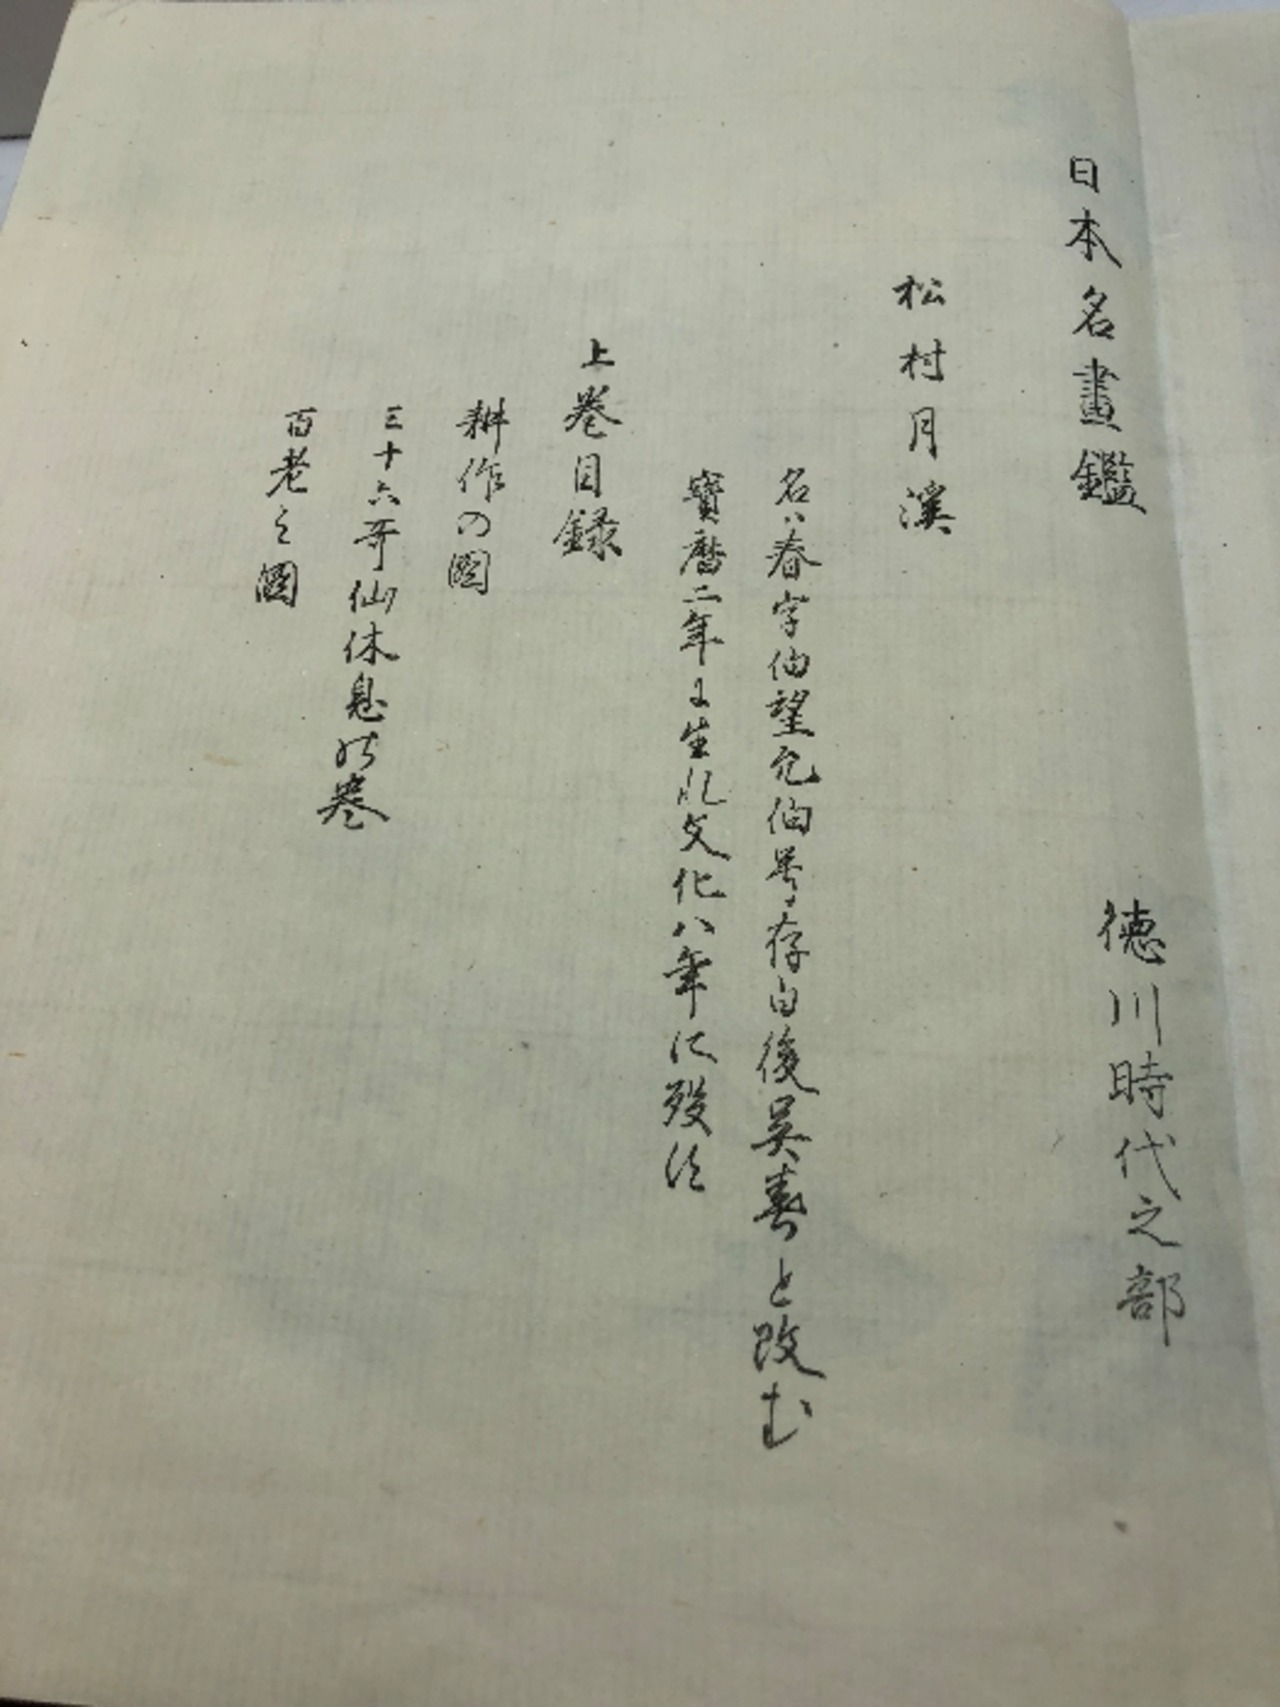 日本名畫鑑　徳川時代之部
松村月溪
名ハ春字伯望允伯号存白後呉春と改む
寳暦二年に生れ文化八年に歿す
上巻目録
耕作の圖
三十六哥仙休息の巻
百老之圖